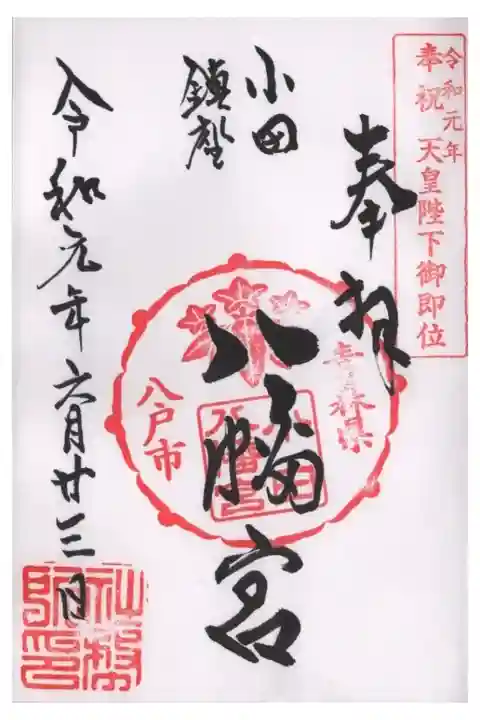 令和元年
奉祝 天皇陛下御即位
奉拝
小田
鎮座
八幡宮
青森県
八戸市
小田
八幡宮
令和元年六月廿三日
社務
所印